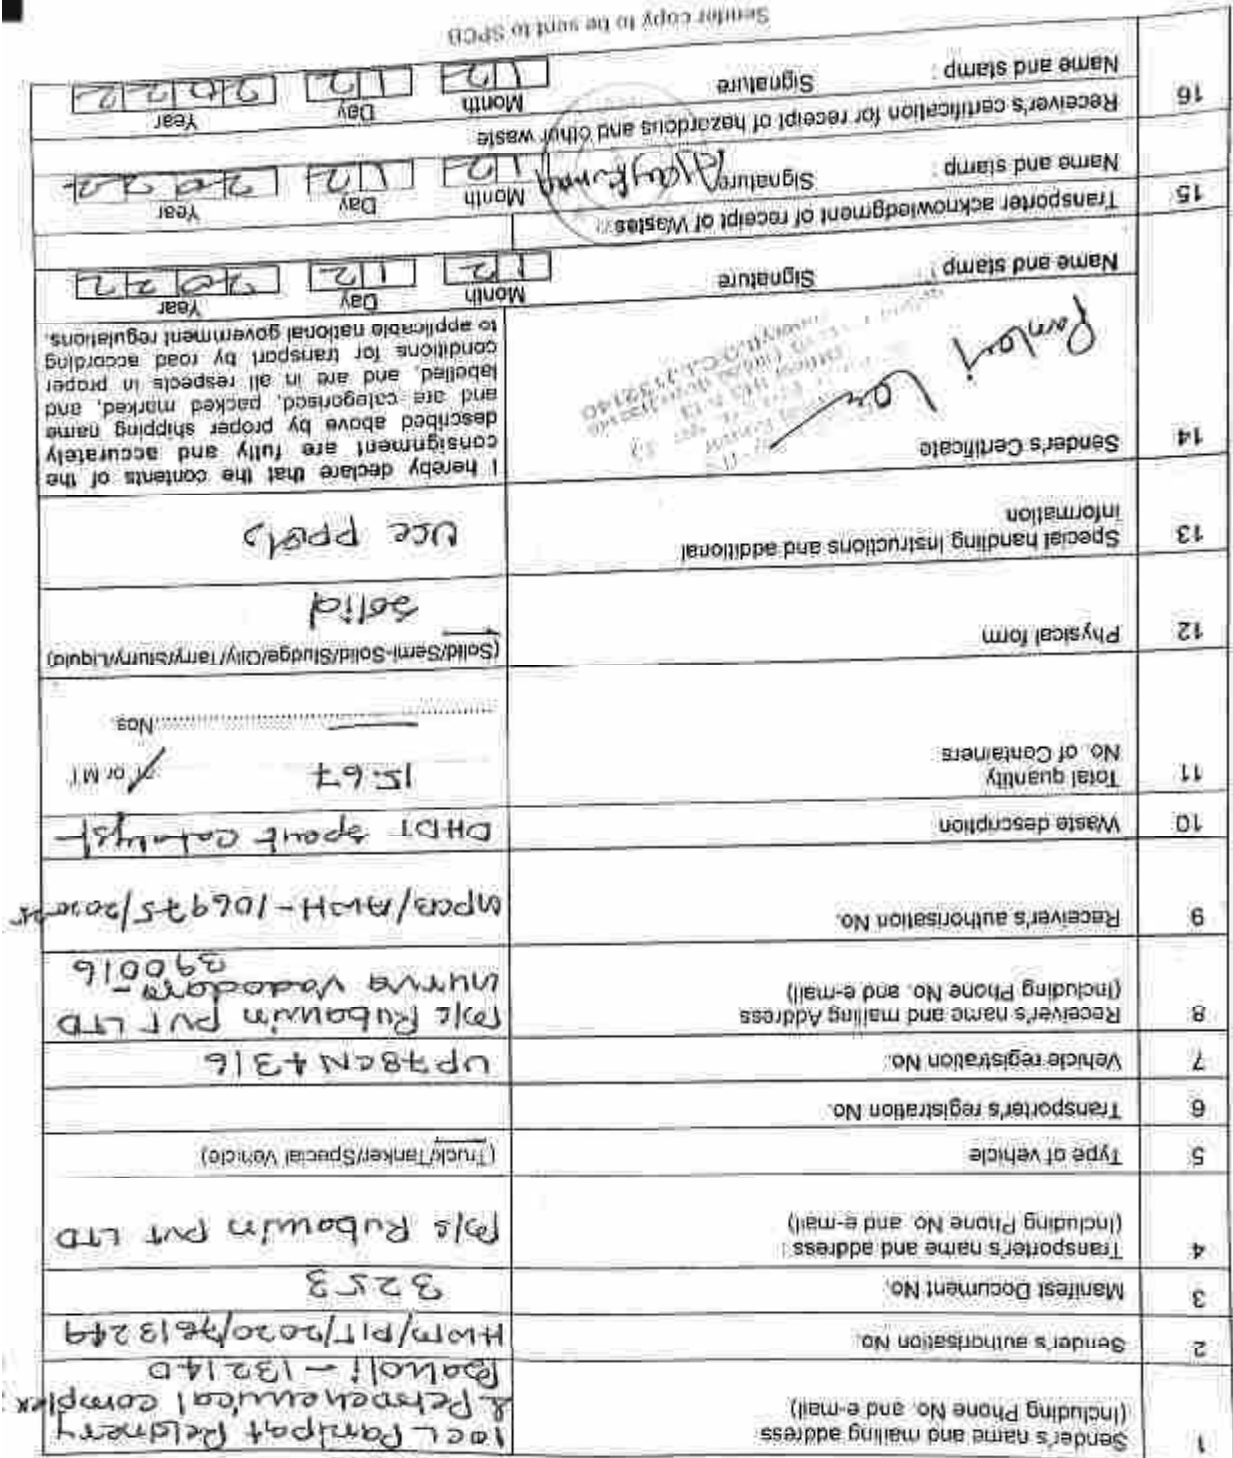 1 Sender's name and mailing address
(Including Phone No. and e-mail)
IOCL Panipat Refinery
& Petrochemical complex
Baholi - 132140
2 Sender's authorisation No.
HWM/PIT/2020/7613249
3 Manifest Document No.
3253
4 Transporter's name and address :
(Including Phone No. and e-mail)
M/s Rubamin PVT LTD
5 Type of vehicle
(Truck/Tanker/Special Vehicle)
6 Transporter's registration No.
7 Vehicle registration No.
UP78CN4316
8 Receiver's name and mailing Address
(Including Phone No. and e-mail)
M/s Rubamin PVT LTD
Vadodara -
390016
9 Receiver's authorisation No.
10 Waste description
DHDT Spent Catalyst
11 Total quantity
No. of Containers
15.67
or MT
Nos.
12 Physical form
(Solid/Semi-Solid/Sludge/Oily/Tarry/Slurry/Liquid)
Solid
13 Special handling Instructions and additional
information
Use PPE's
14 Sender's Certificate
I hereby declare that the contents of the
consignment are fully and accurately
described above by proper shipping name
and are categorised, packed marked, and
labelled, and are in all respects in proper
conditions for transport by road according
to applicable national government regulations.
Name and stamp :
Signature
Month
Day
Year
12
12
2022
15 Transporter acknowledgment of receipt of Wastes
Name and stamp :
Signature
Month
Day
Year
12
12
2022
16 Receiver's certification for receipt of hazardous and other waste
Name and stamp :
Signature
Month
Day
Year
12
12
2022
Sender copy to be sent to SPCB